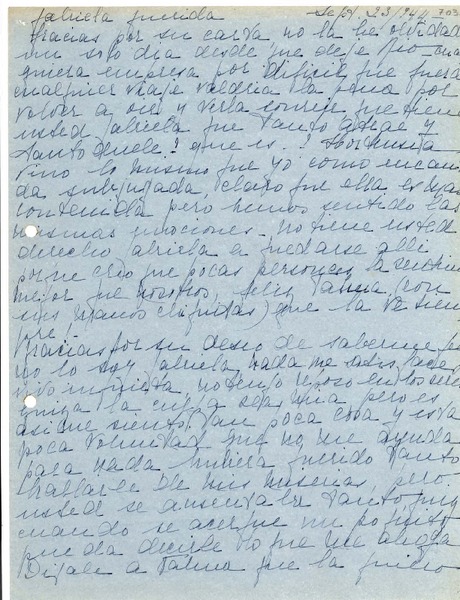 Gabriela querida Sept 23 1944 703
Gracias por su carta no la he olvidado
un solo dia desde que deje Rio cual
quiera empresa por dificil que fuera
cualquier viaje valdria la pena por
volver a oir y verla sonreir que tiene
usted Gabriela que tanto atrae y
tanto duele? que es?
vino lo mismo que yo como encanta
da subyugada, claro que ella es mas
contenida pero hemos sentido las
mismas emociones. No tiene usted
derecho Gabriela a quedarse alli
porque creo que pocas personas la
mejor que nosotros, feliz (con
sus manos) que la ve siem
pre,
Gracias por su deseo de saberme
no lo soy Gabriela, nada me satisface
vivo inquieta no tengo reposo en los
quiza la culpa sea mia pero es
asi que siento tan poca cosa y esta
poca voluntad que no me ayuda
para nada hubiera querido tanto
hablarle de mis miserias, pero
usted se ausentaba tanto que
cuando se acerque un poquito
pueda decirle lo que me
Digale a Palma que la quiero